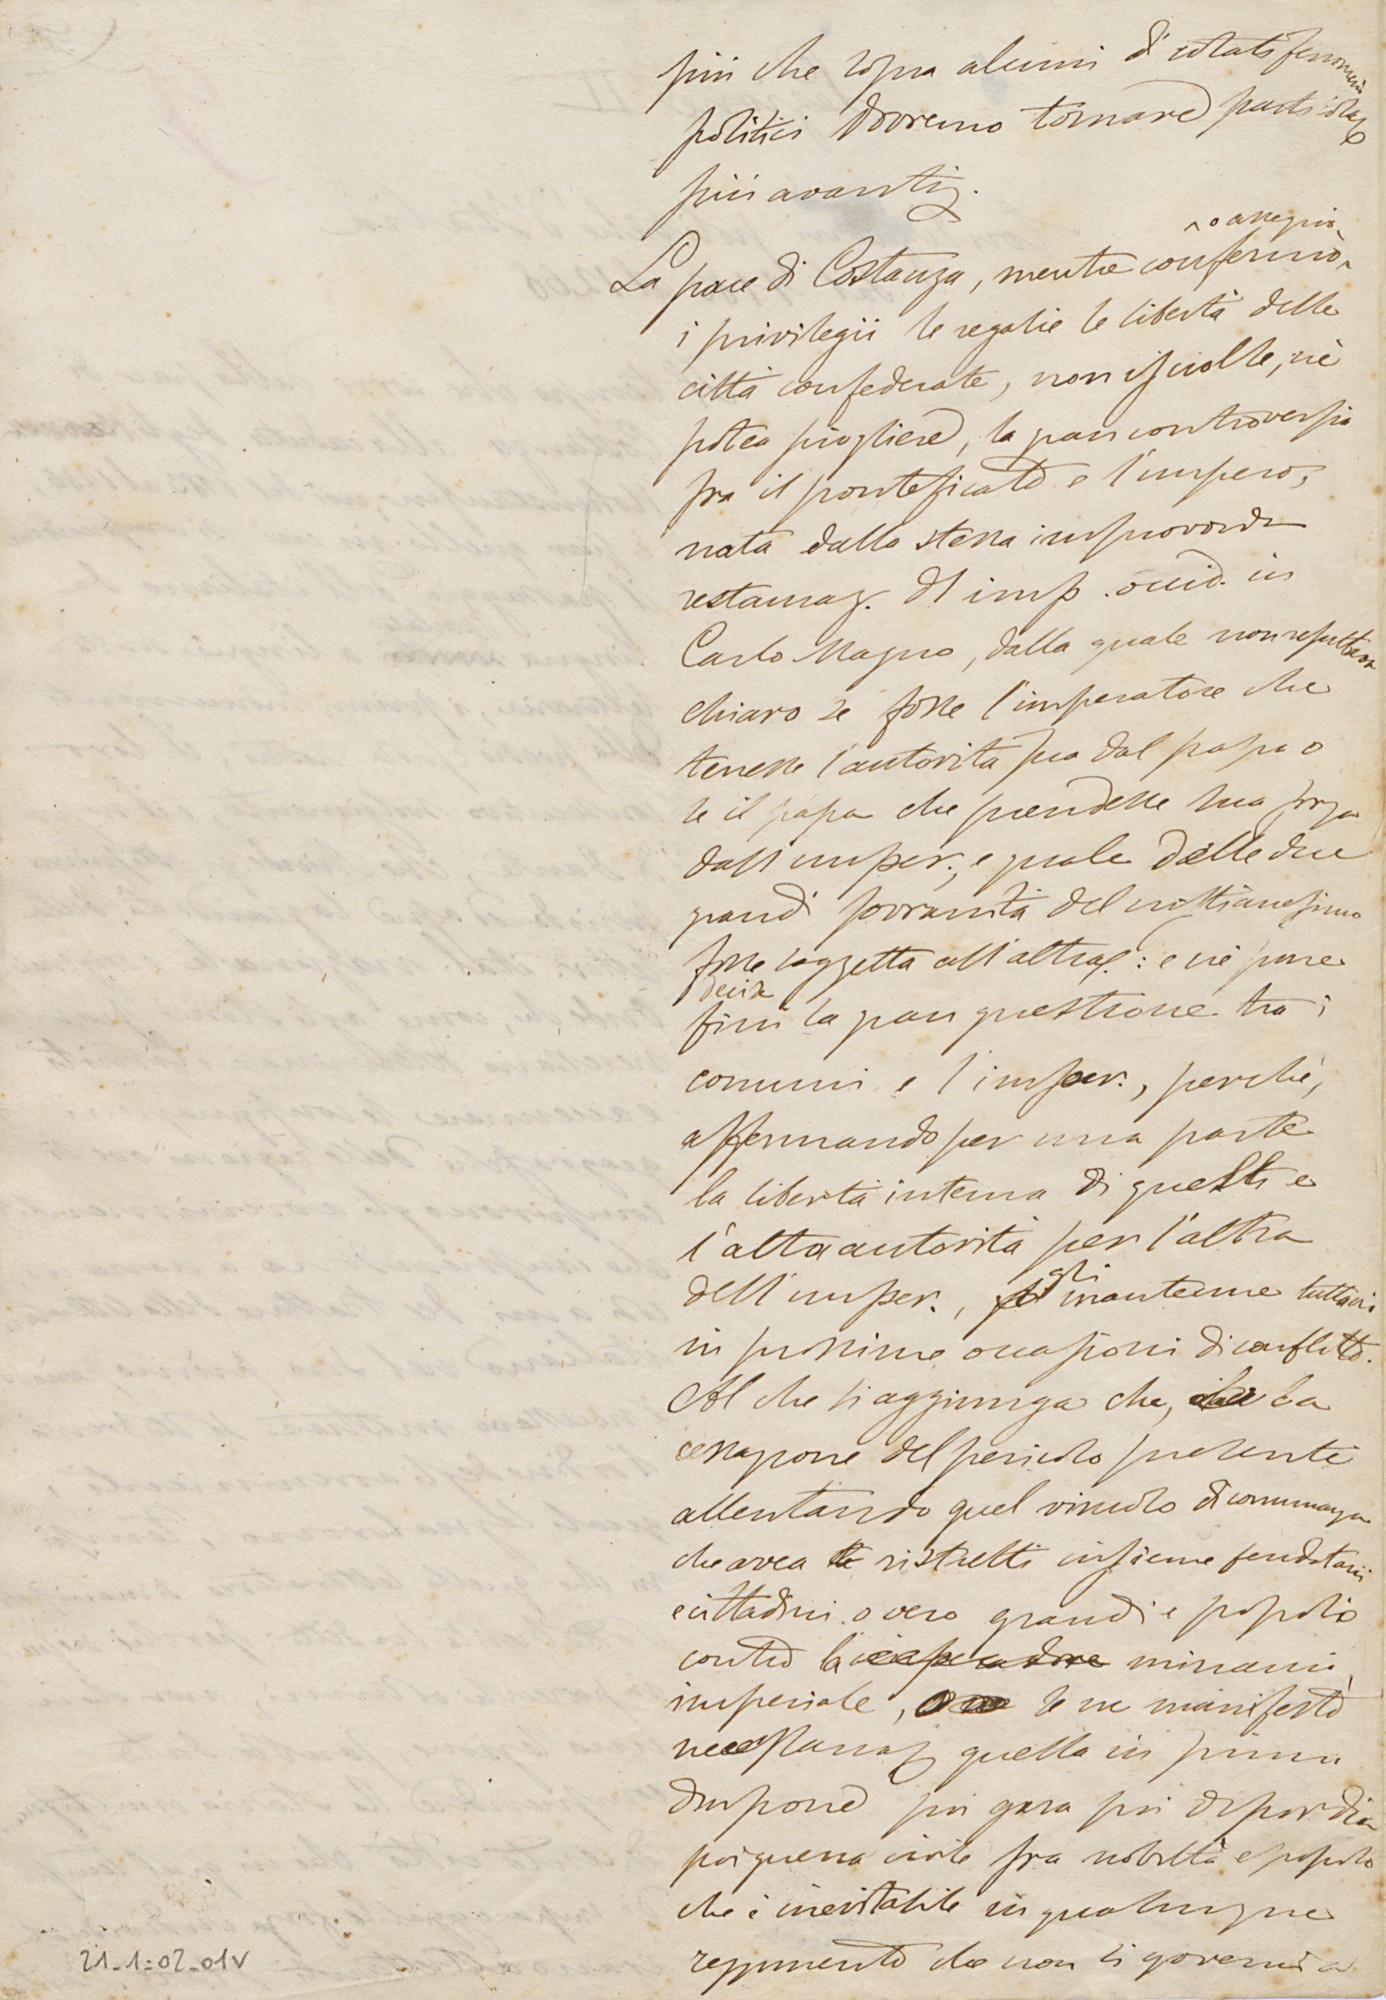 più che sopra alcuni di cotali fenomeni
politici dovremo tornare
più avanti.
^ o assegnò
La pace di Costanza, mentre confermò
i privilegii le regalie le libertà delle
città confederate, non isciolse, nè
potea sciogliere, la gran controversia
fra il pontificato e l'impero,
nata dalla stessa improvvida
restauraz. dl imp. occid. in
Carlo Magno, dalla quale non resultava
chiaro se fosse l'imperatore che
tenesse l'autorità sua dal papa o
se il papa che prendesse sua forza
dall'imper., e quale delle due
grandi sovranità del cristianesimo
fosse soggetta all'altra: e nè pure
decisa
finì la gran questione tra i
comuni e l'imper., perché,
affermando per una parte
la libertà interna di quelli e
l'alta autorità per l'altra
gli
dell'imper., mantenne tuttavia
in prossime occasioni di conflitto.
Al che si aggiunga che, la
cessazione del pericolo presente
allentando quel vincolo di comunanza
che avea ristretti insieme feudatarii
e cittadini o vero grandi e popolo
contro la minaccia
imperiale, se ne manifestò
necessaria quella in prima
divisione poi gara poi discordia
poi guerra civile fra nobiltà e popolo
che è inevitabile in qualunque
reggimento che non si governi a
21-1:02-01v